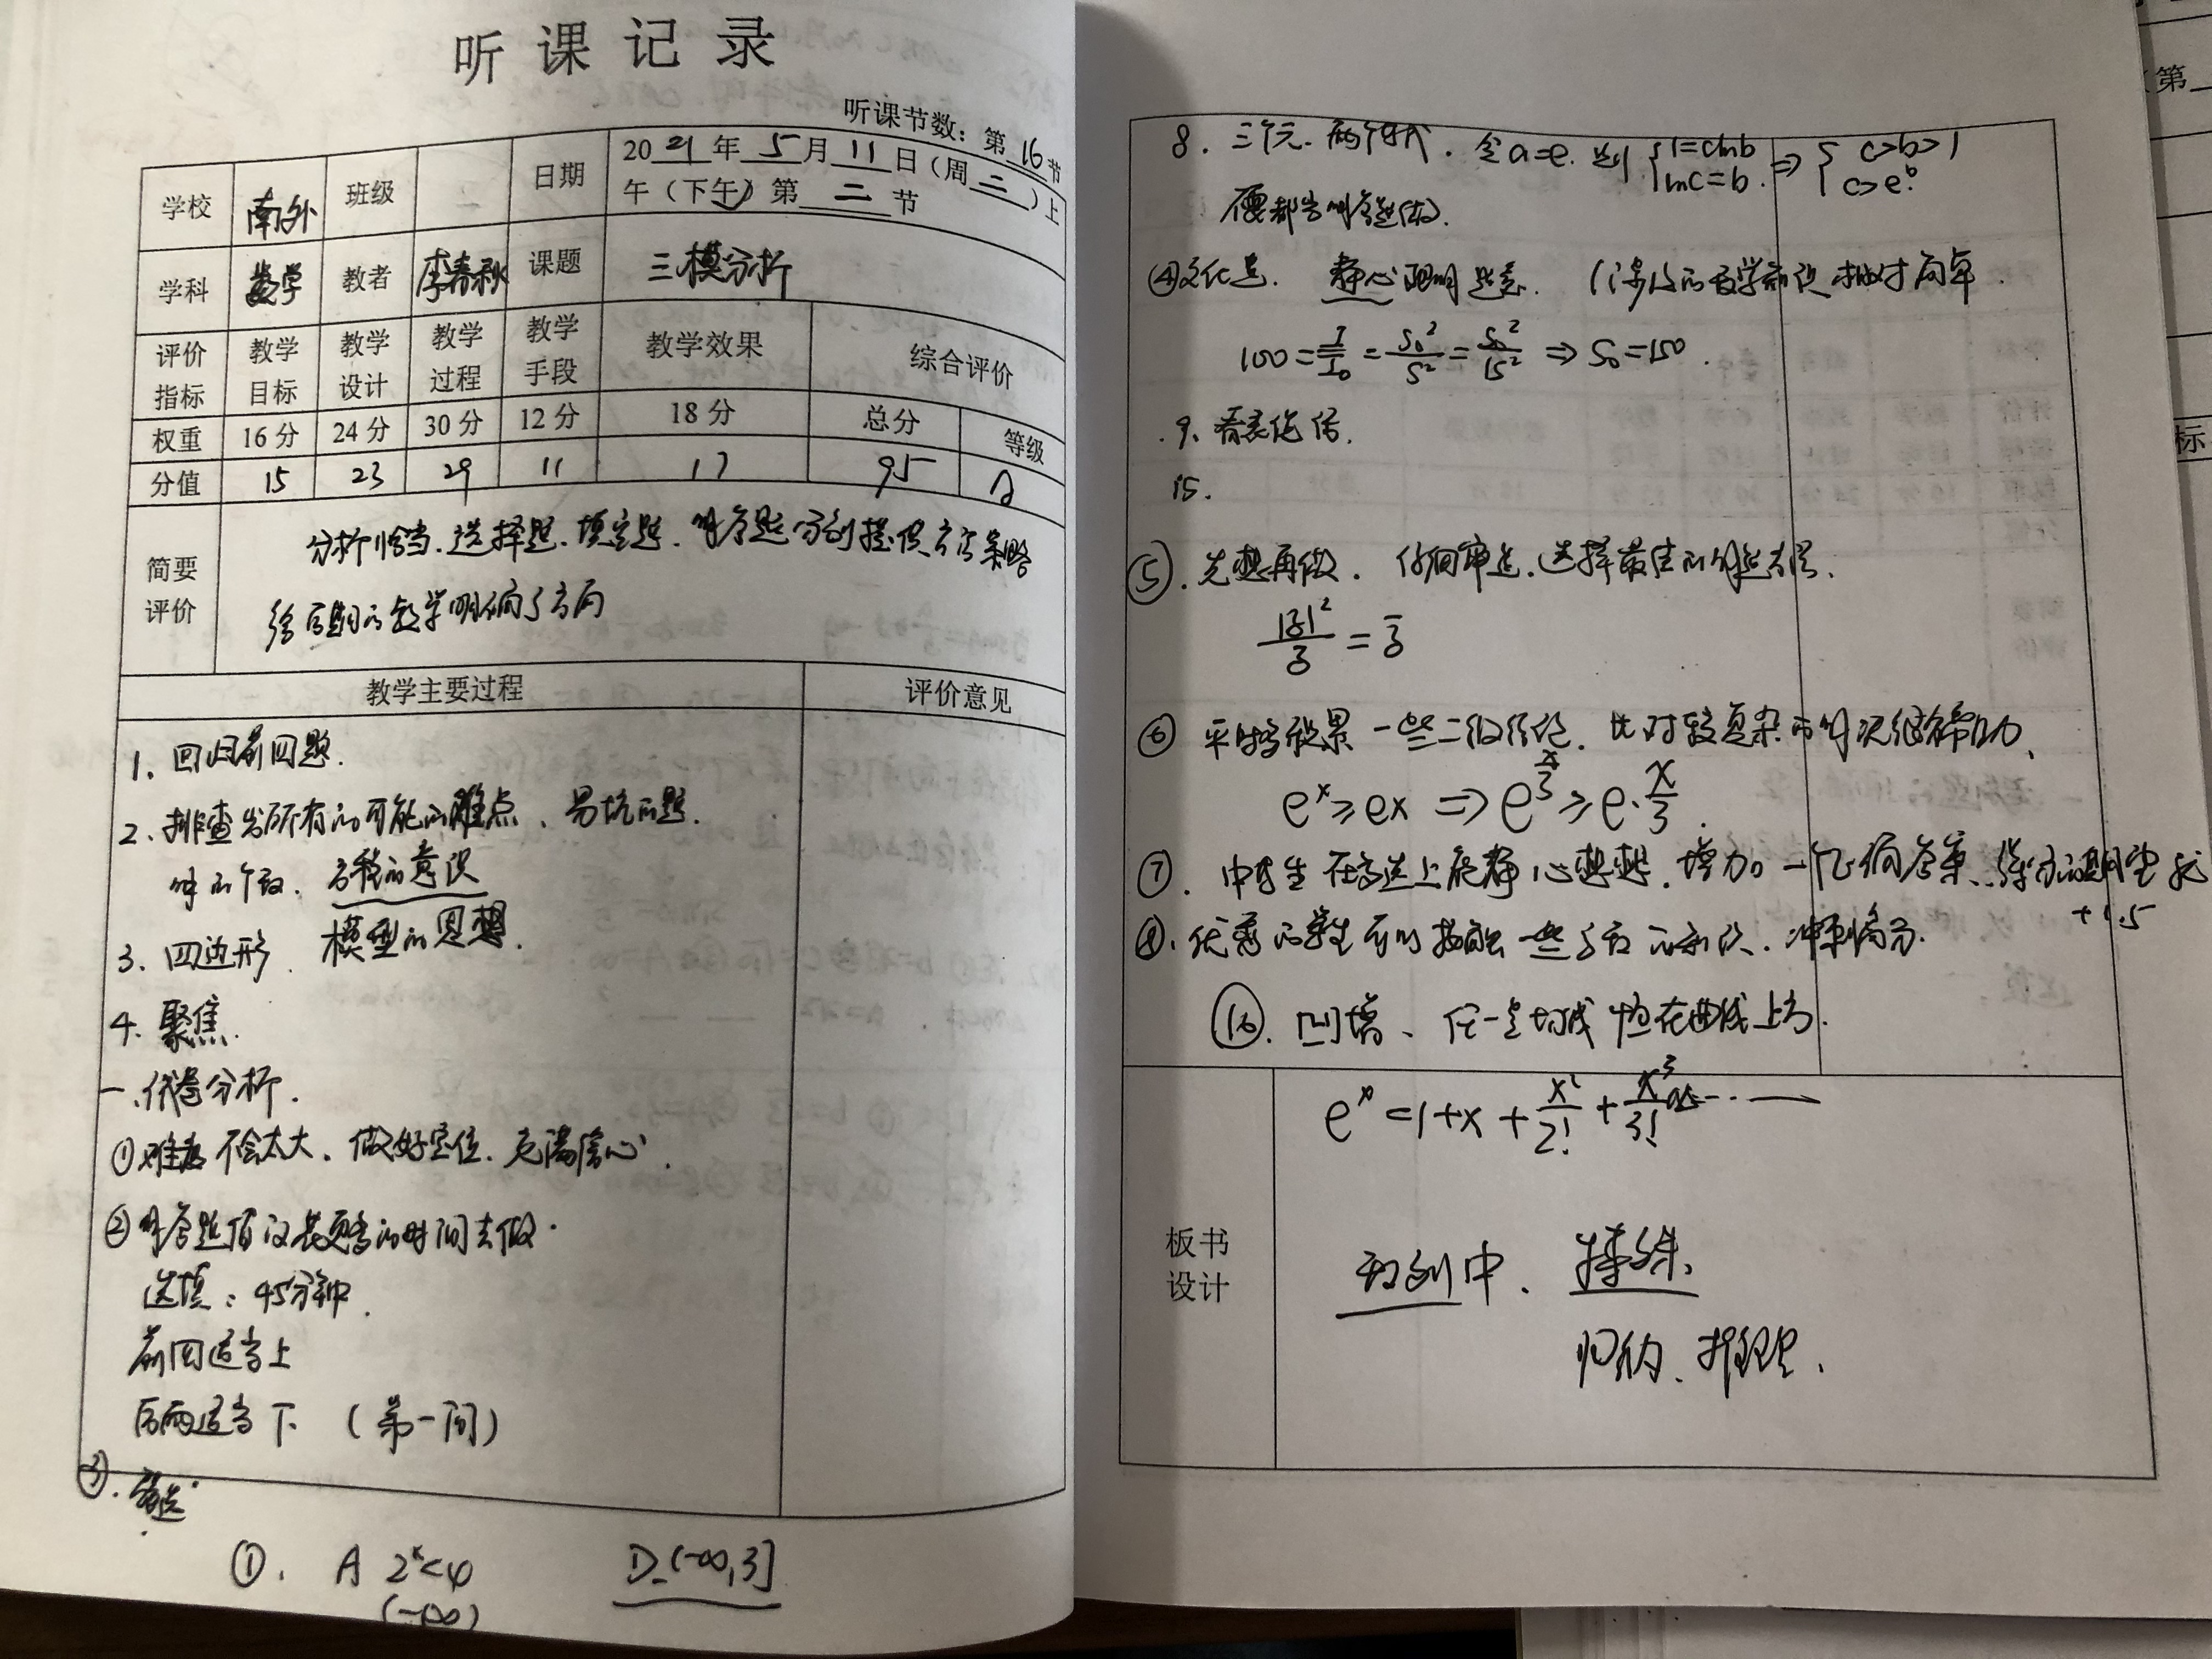 听课记录
听课节数：第16节
学校 南外 班级 日期 2021年5月11日（周二）上
午（下午）第二节
学科 数学 教者 李春秋 课题 三模分析
评价指标 教学目标 教学设计 教学过程 教学手段 教学效果 综合评价
权重 16分 24分 30分 12分 18分 总分 等级
分值 15 23 29 11 17 95 A
简要评价 分析恰当.选择题.填空题.解答题分别提供方法策略
给后期的教学明确了方向
教学主要过程 评价意见
1. 回归前四题.
2. 排查出所有的可能的难点、易坑的题.
解的个数. 方程的意识
3. 四边形. 模型的思想.
4. 聚焦.
一、试卷分析.
①难度不会太大. 做好定位. 充满信心.
②解答题值得花更多的时间去做.
选填：45分钟.
前四适当上
后两适当下 （第一问）
③. 审题.
①. A 2^x<4 D.(-∞,3]
(-∞)
8. 三个元. 两个等式. 令a=e. 则 {1=clnb lnc=b. ⇒ { c>b>1 c>e^b.
④文化题. 静心理解题意. （涉及的数学知识相对简单.
100=I/I₀=S₀²/S²=S₀²/15² ⇒ S₀=150.
9. 看表作估.
15.
⑤. 先想再做. 仔细审题.选择最佳的解题方法.
|z|²/z = z̄
⑥ 平时多积累一些二级结论. 比对较复杂的解决很有帮助.
e^x≥ex ⇒ e^(x/3)≥e·x/3.
⑦. 中等生在多选上应静心想想. 增加一个正确答案.
+1.5
⑧. 优秀的学生可以接触一些多方面知识. 冲刺满分.
⑯. 凹增、任一点切线恒在曲线上方.
e^x=1+x+x²/2!+x³/3!+……
板书设计
数列中、
归纳、推理.